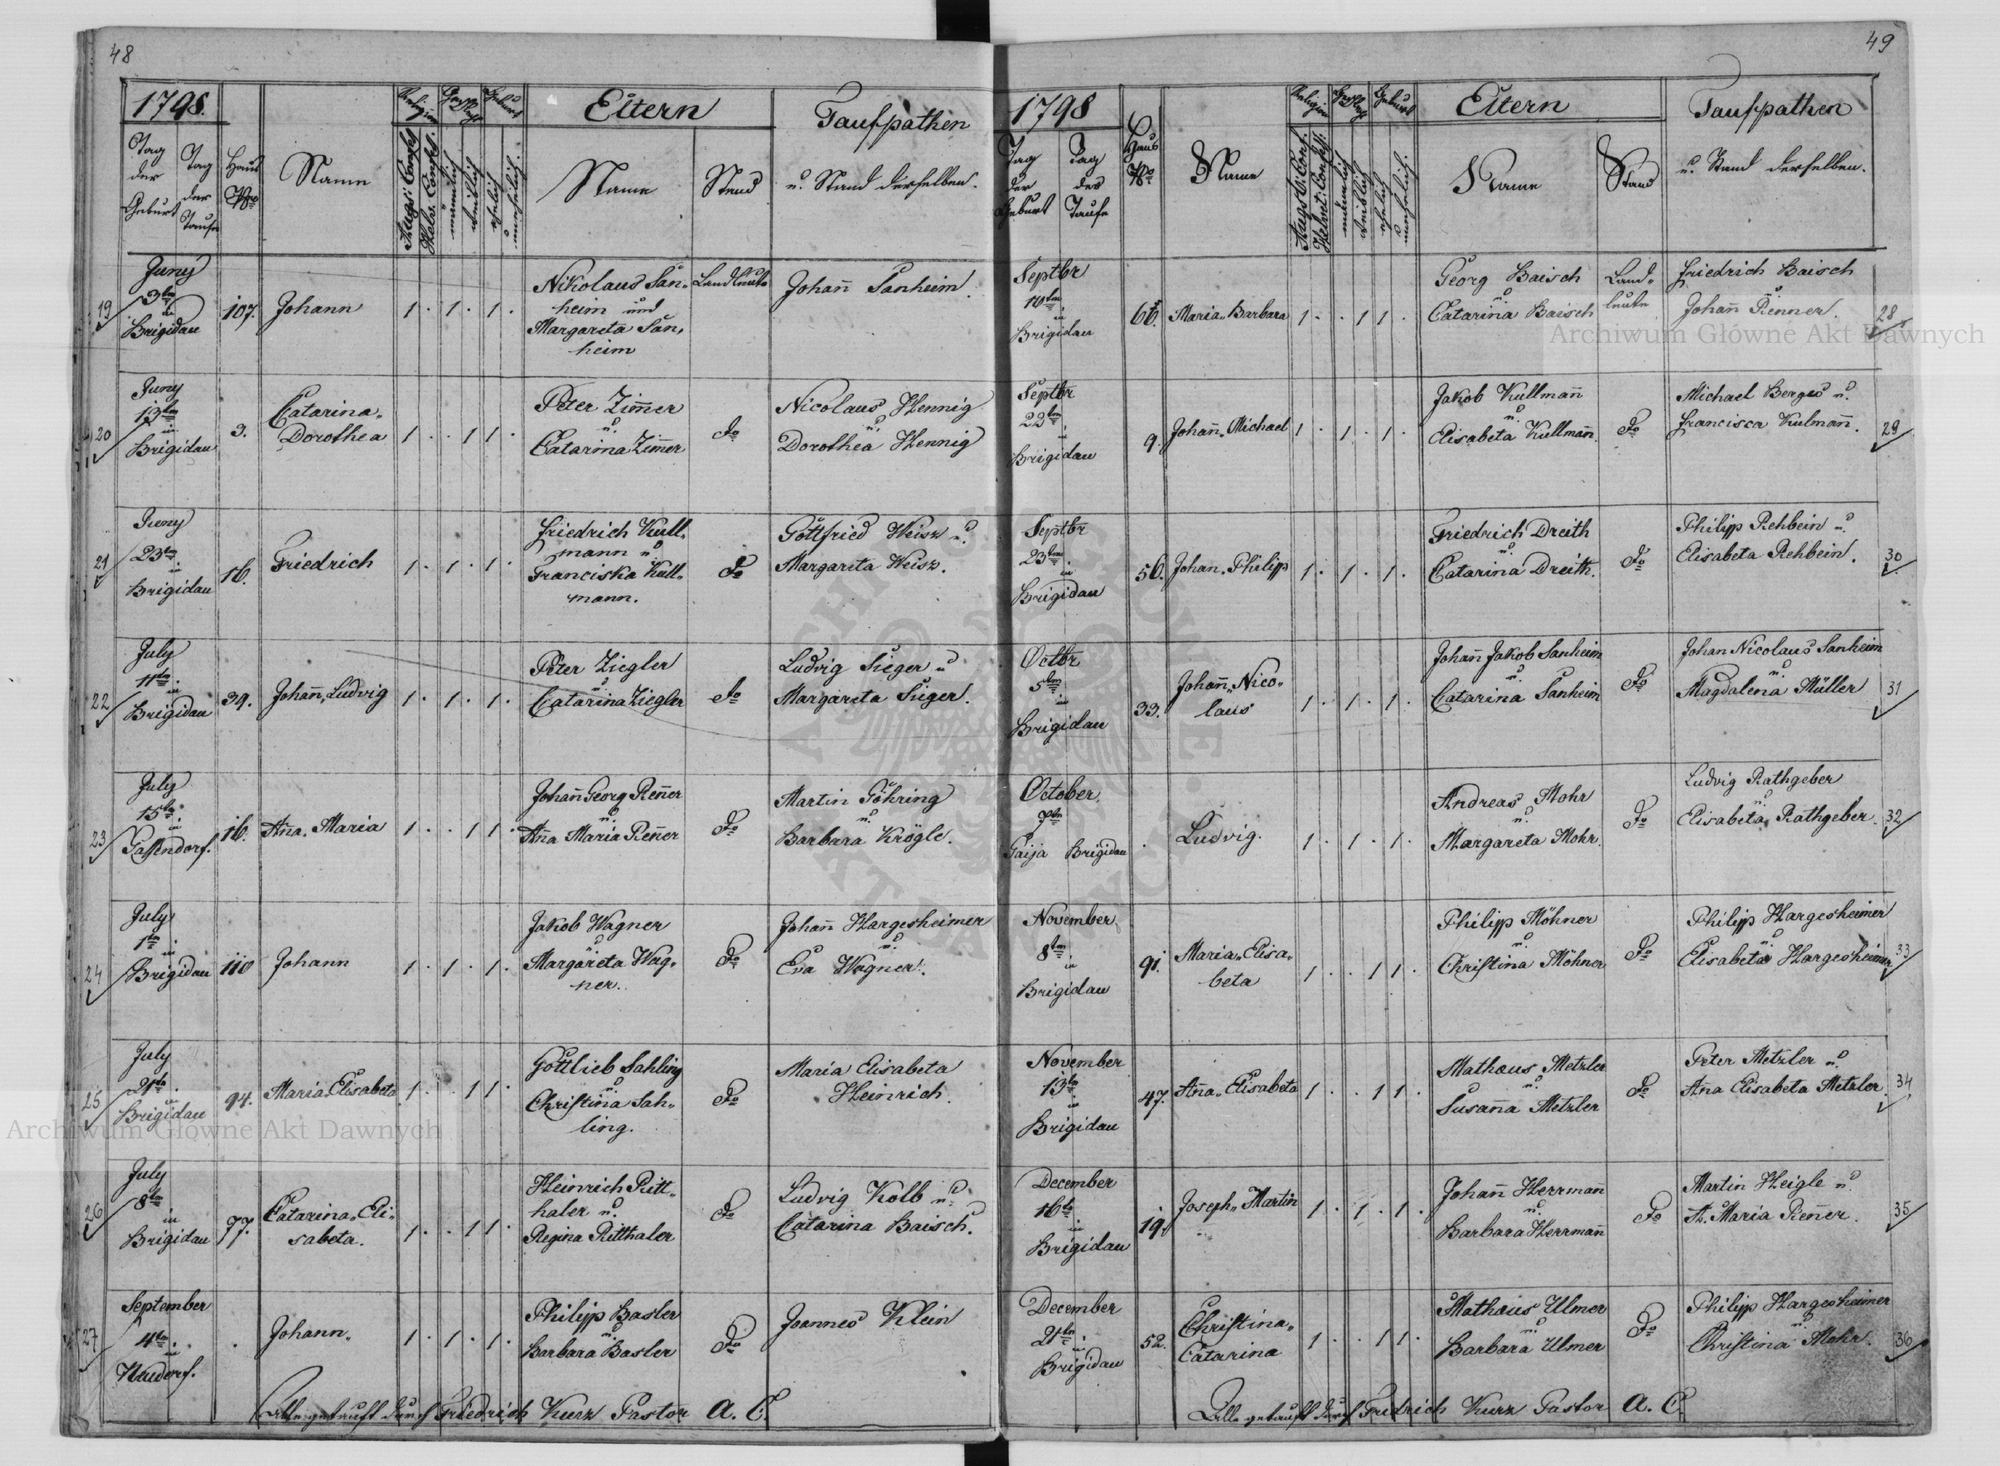 48
1798.
Tag der Geburt
Tag der Taufe
Haus No
Name
Religion
Augs: Confess:
Helv. Confess.
Geschlecht
männlich
weiblich
Geburt
ehelich
unehelich.
Eltern
Name
Stand
Taufpathen
u. Stand derselben.
19
Juny
3tn
in
Brigidau
107.
Johann
1 . 1 . 1 .
Nikolaus San-
heim und
Margareta San-
heim
Landleute
Johañ Sanheim.
20
Juny
13tn
in
Brigidau
3.
Catarina-
Dorothea
1 . . 1 1 .
Peter Zim̃er
u.
Catarina Zim̃er
do
Nicolaus Hennig
u.
Dorothea Hennig
21
Juny
23tn
in
Brigidau
16.
Friedrich
1 . 1 . 1 .
Friedrich Kull-
mann u.
Franciska Kull-
mann.
do
Gottfried Weisz u.
Margareta Weisz.
22
July
11tn
in
Brigidau
39.
Johañ Ludvig
1 . 1 . 1 .
Peter Ziegler
u.
Catarina Ziegler
do
Ludvig Sieger u.
Margareta Sieger.
23
July
15tn
in
Gassendorf.
16.
Aña-Maria
1 . . 1 1 .
Johañ Georg Reñer
u.
Aña Maria Reñer
do
Martin Göhring
u.
Barbara Krögle.
24
July
1tn
in
Brigidau
110
Johann
1 . 1 . 1 .
Jakob Wagner
u.
Margareta Wag-
ner.
do
Johañ Hargesheimer
u.
Eva Wagner.
25
July
21tn
in
Brigidau
94.
Maria Elisabeta
1 . . 1 1 .
Gottlieb Sahling
u.
Christina Sah-
ling.
do
Maria Elisabeta
Heinrich.
26
July
8tn
in
Brigidau
77.
Catarina-Eli-
sabeta.
1 . . 1 1 .
Heinrich Ritt-
haler u.
Regina Ritthaler
do
Ludvig Kolb u.
Catarina Baisch.
27
September
4tn
in
Neudorf.
.
Johann-
1 . 1 . 1 .
Philipp Basler
u.
Barbara Basler
do
Joannes Klein
Alle getauft durch Friedrich Kurz Pastor A. C.
49
1798
Tag der Geburt
Tag der Taufe
Haus No
Name
Religion
Augs: Conf.
Helvet: Confess.
Geschlecht
männlich
weiblich
Geburt
ehelich
unehelich.
Eltern
Name
Stand
Taufpathen
u. Stand derselben.
Septbr
10tn
in
Brigidau
66.
Maria-Barbara
1 . . 1 1 .
Georg Baisch
u.
Catarina Baisch
Land-
leute
Friedrich Baisch
u.
Johañ Renner.
28
Septbr
22tn
in
Brigidau
9.
Johañ-Michael
1 . 1 . 1 .
Jakob Kullmañ
u.
Elisabeta Kullmañ
do
Michael Berges u.
Francisca Kulmañ.
29
Septbr
23tn
in
Brigidau
56.
Johan-Philipp
1 . 1 . 1 .
Friedrich Dreith
u.
Catarina Dreith.
do
Philipp Rehbein u.
Elisabeta Rehbein.
30
Octbr
5tn
in
Brigidau
33.
Johañ-Nico-
laus
1 . 1 . 1 .
Johañ Jakob Sanheim
u.
Catarina Sanheim
do
Johan Nicolaus Sanheim
u.
Magdalena Müller
31
October
7tn
Gaija Brigidau
.
Ludvig.
1 . 1 . 1 .
Andreas Mohr
u.
Margareta Mohr.
do
Ludvig Rathgeber
u.
Elisabeta Rathgeber.
32
November
8tn
in
Brigidau
91.
Maria-Elisa-
beta
1 . . 1 1 .
Philipp Möhner
u.
Christina Möhner
do
Philipp Hargesheimer
u.
Elisabeta Hargesheimer
33
November
13tn
in
Brigidau
47.
Aña-Elisabeta
1 . . 1 1 .
Mathaus Metzler
u.
Susaña Metzler
do
Peter Metzler u.
Aña Elisabeta Metzler.
34
December
16tn
in
Brigidau
19.
Joseph-Martin
1 . 1 . 1 .
Johañ Herrmañ
u.
Barbara Herrmañ
do
Martin Heigle u.
A. Maria Reñer.
35
December
21tn
in
Brigidau
52.
Christina-
Catarina
1 . . 1 1 .
Mathäus Ulmer
u.
Barbara Ulmer
do
Philipp Hargesheimer
u.
Christina Mohr.
36
Alle getauft durch Fridrich Kurz Pastor A. C.
Archiwum Główne Akt Dawnych
Archiwum Główne Akt Dawnych
ARCHIWUM GŁÓWNE AKT DAWNYCH